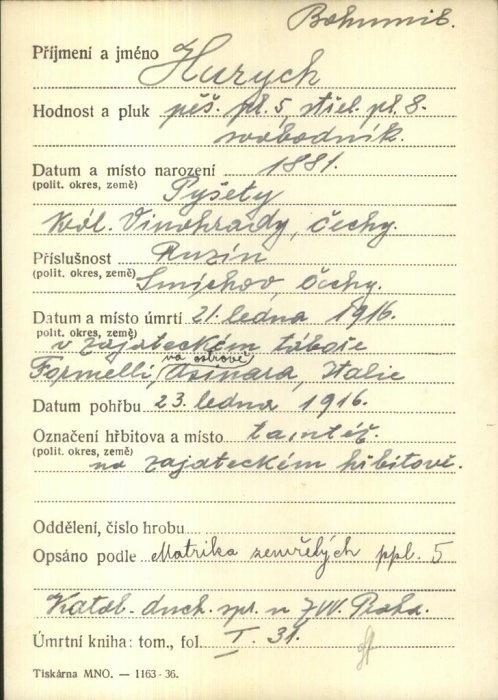 Bohumil.
Příjmení a jméno Hurych
Hodnost a pluk pěš. pl. 5, střel. pl. 8.
svobodník.
Datum a místo narození 1881.
(polit. okres, země) Pyšely
Král. Vinohrady, Čechy.
Příslušnost Ruzín
(polit. okres, země) Smíchov, Čechy.
Datum a místo úmrtí 21. ledna 1916.
polit. okres, země)
v zajateckém táboře
na ostrově
Formelli, Asinara, Italie
Datum pohřbu 23. ledna 1916.
Označení hřbitova a místo tamtéž.
(polit. okres, země)
na zajateckém hřbitově.
Oddělení, číslo hrobu
Opsáno podle Matrika zemřelých ppl. 5
Katol. duch. spr. u ZVV. Praha.
Úmrtní kniha: tom., fol. I. 31.
Tiskárna MNO. — 1163-36.